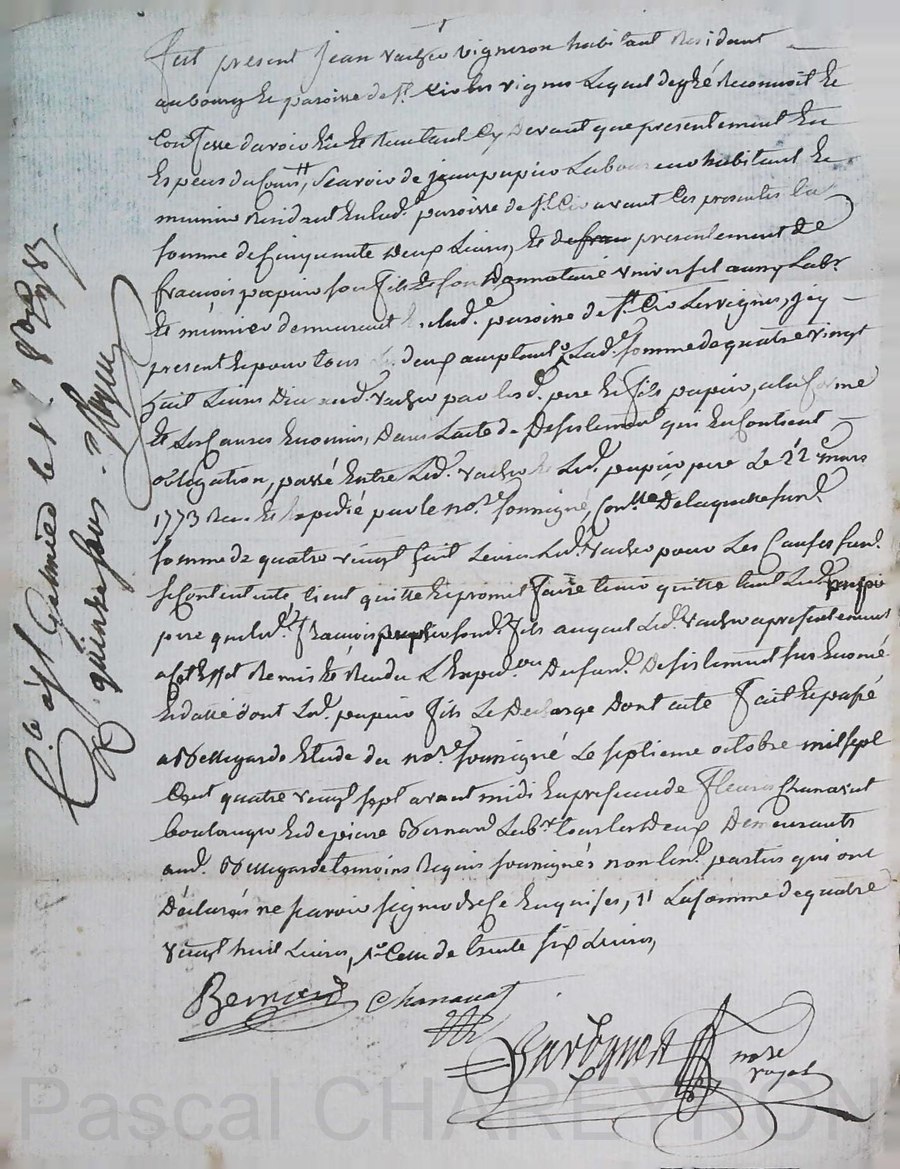 fut présent jean vacher vigneron habitant Résident
au bourg et paroisse de St Cir les vignes Lequel de gré Reconnoit et
Confesse d'avoir Eu et Reçu tant Cy devant que presentement En
Especes du Cours, Sçavoir de jean papier Laboureur habitant et
munier Résident En lad. paroisse de St Cir avant Ces presentes la
somme de Cinquante Deux Livres, et presentement de
francois papier son fils et son Donnataire universel aussy Labr
Et munier demeurant En lad. paroisse de St Cir Les vignes, jcy
present Et pour tous deux Lad. somme de quatre vingt
huit Livres Due aud. vacher par lesd. pere et fils papier, a la forme
Et Les Causes Enoncées, Dans L'acte de Desistement qui En Contient
obligation, passé Entre Led. vacher et Led. papier pere Le 22 mars
1773 Reçu Et Expedié par le nore soussigné, de Laquelle susd.
somme de quatre vingt huit Livres Led. vacher pour Les Causes susd.
se Contente tient quitte Et promet faire tenir quitte tant Led. papier
pere que led. francois papier sond. fils auquel Led. vacher a presentement
a Cet Effet Remis Et Rendu L'Expedon Du susd. Desistement sus Enoncé
Et datté dont Led. papier fils Le Decharge Dont acte fait Et passé
a Bellegarde Etude du nore soussigné Le septieme octobre mil sept
Cent quatre vingt sept avant midi En presence de fleury Chanavat
boulanger Et de pierre Bernard Labr tous les Deux Demeurants
aud. Bellegarde temoins Requis soussignés non Lesd. parties qui ont
Déclarés ne sçavoir signer de Ce Enquises, La somme de quatre
vingt huit Livres, Celle de trente six Livres,
Bernard Chanavat
nore
royal
Cle à St Galmier le 8bre 1787
quinze sous
Pascal CHAREYRON